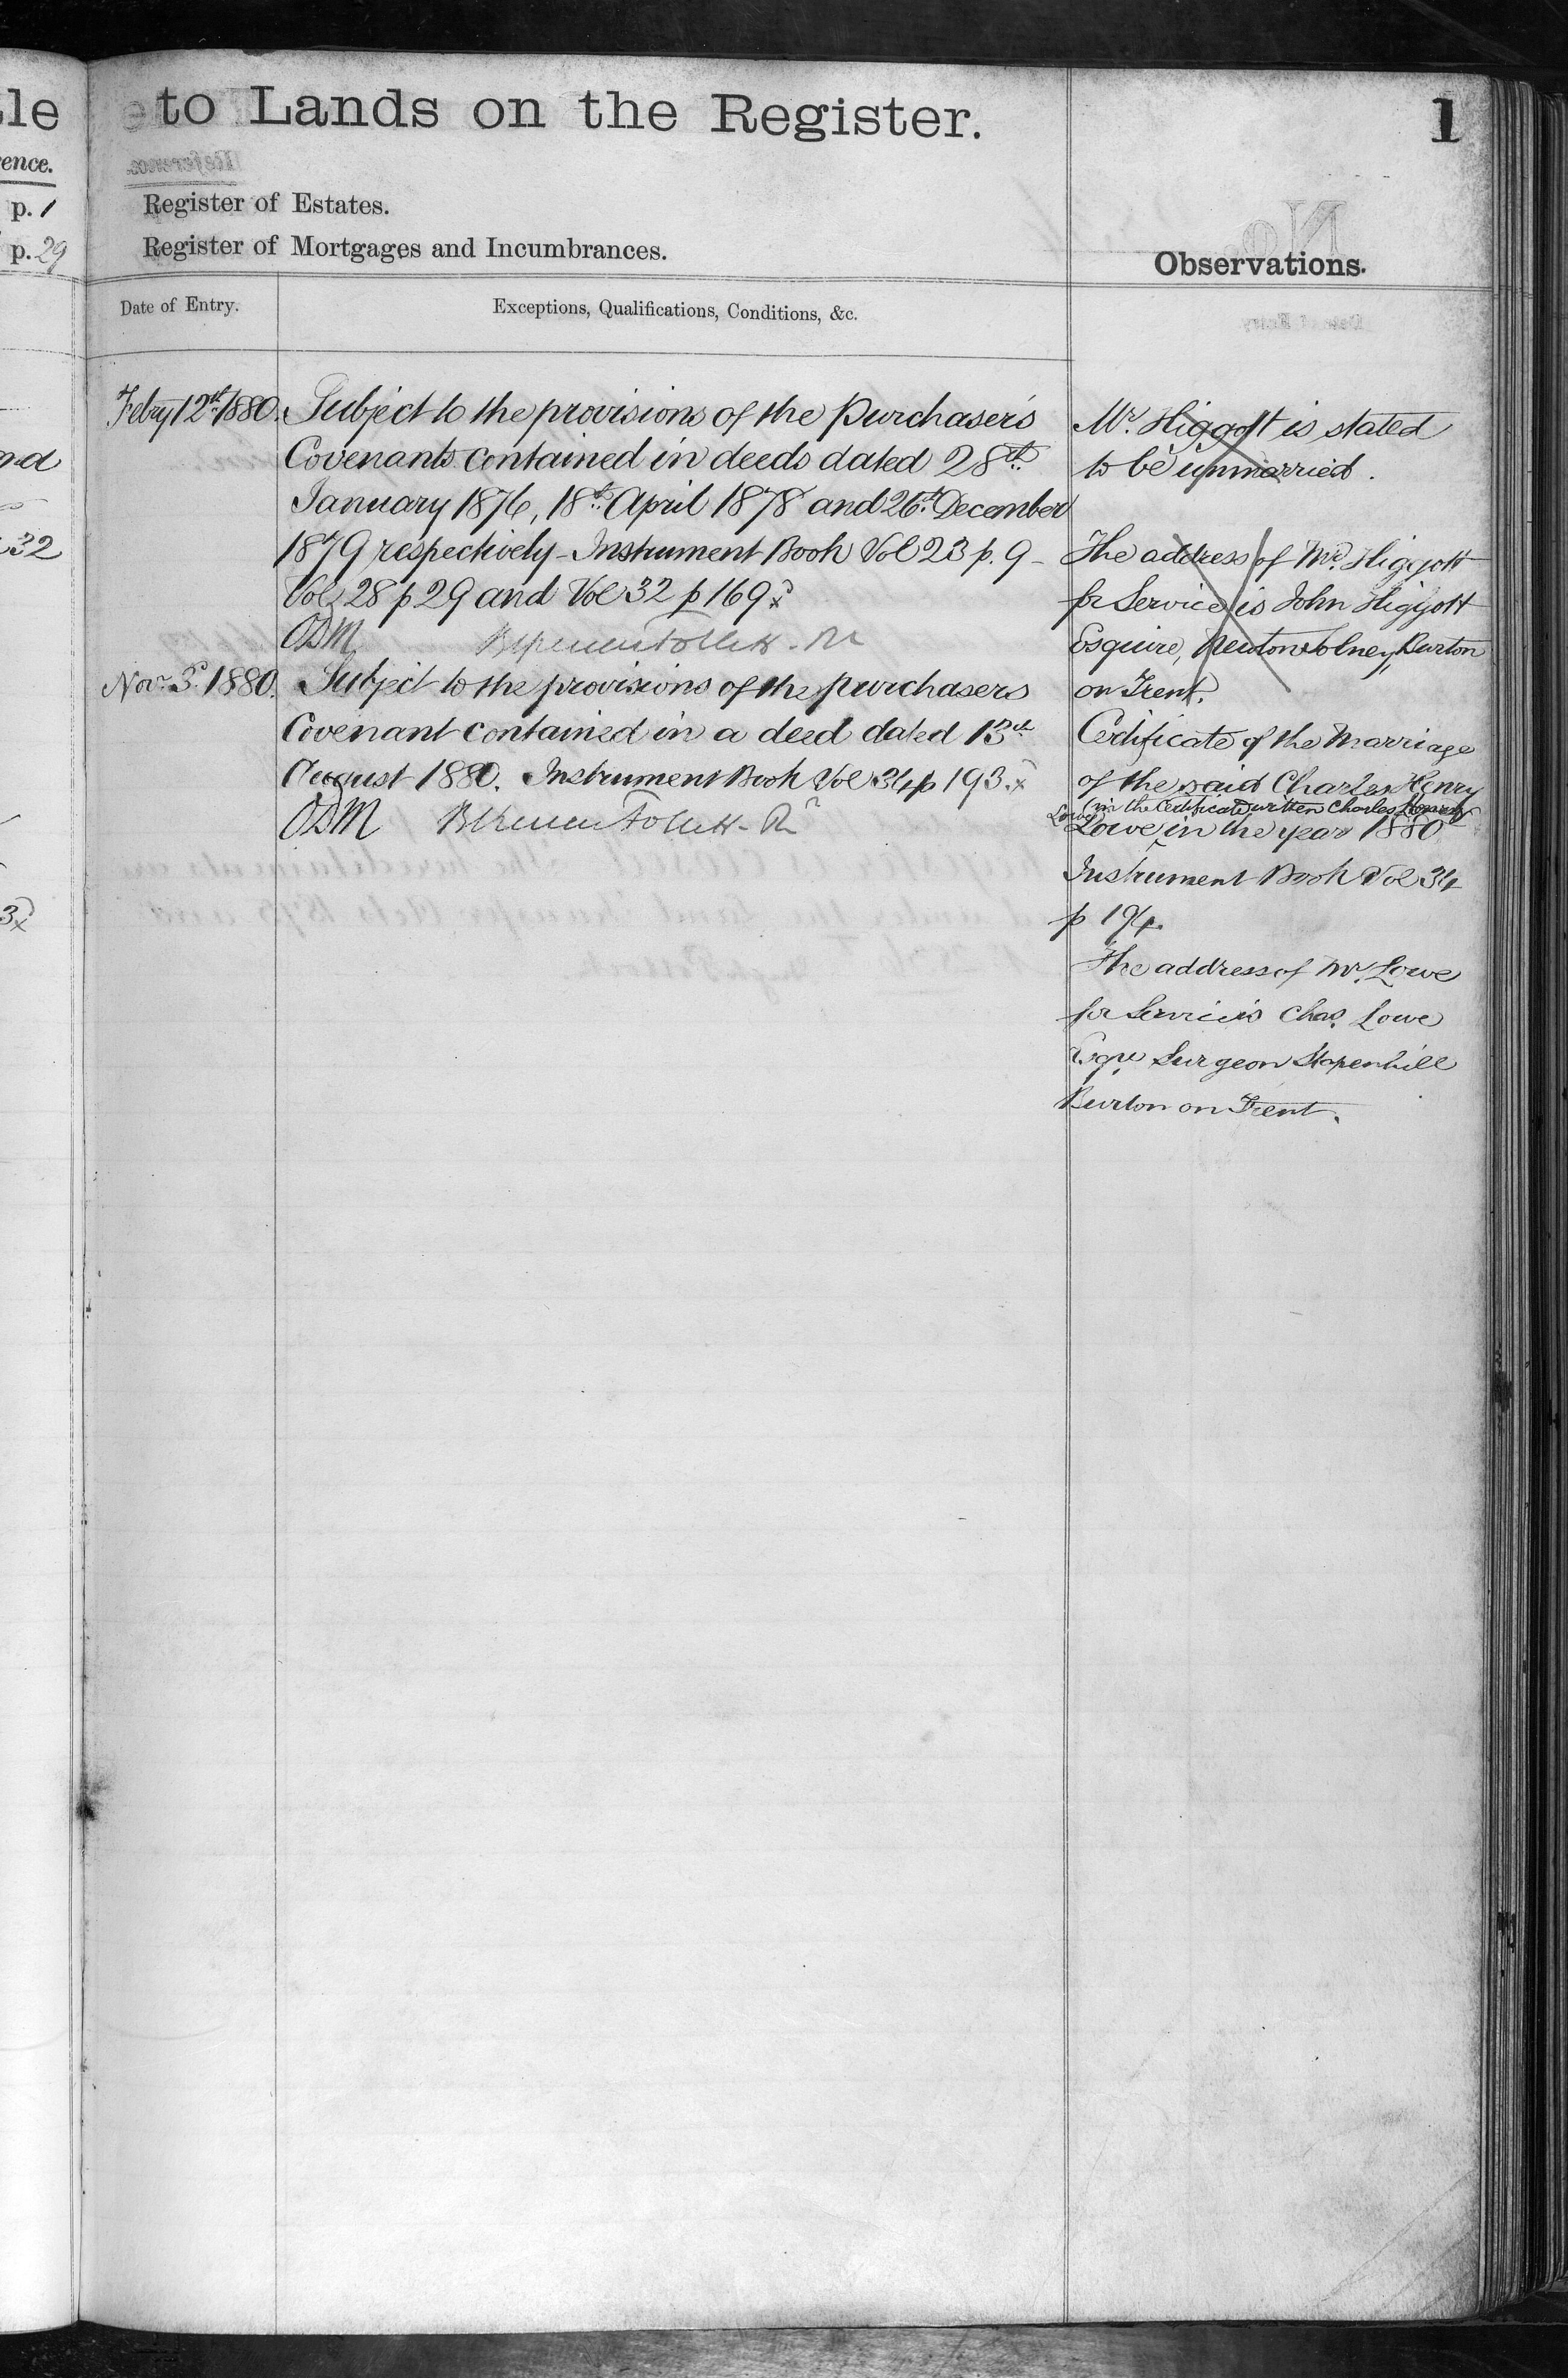 le
to Lands on the Register.
1
ence.
p. 1
Register of Estates.
p. 29
Register of Mortgages and Incumbrances.
Observations.
Date of Entry.
Exceptions, Qualifications, Conditions, &c.
Febry 12th 1880. Subject to the provisions of the Purchaser's
Covenants contained in deeds dated 28th
January 1876, 18th April 1878 and 26th December
1879 respectively - Instrument Book Vol 23 p. 9 -
Vol 28 p 29 and Vol 32 p 169 x
ODM
Nov. 3d 1880. Subject to the provisions of the purchasers
Covenant contained in a deed dated 13th
August 1880. Instrument Book Vol 34 p 193 x
ODM
Mr. Higgott is stated
to be unmarried.
The address of Mr. Higgott
for Service is John Higgott
Esquire, Newton Solney, Burton
on Trent.
Certificate of the Marriage
of the said Charles Henry
(in the Certificate written Charles
Lowe)
Lowe in the year 1880
Instrument Book Vol 34
p 194.
The address of Mr. Lowe
for Service is Chas. Lowe
Esqre Surgeon Stapenhill
Burton on Trent.
nd
32
3x